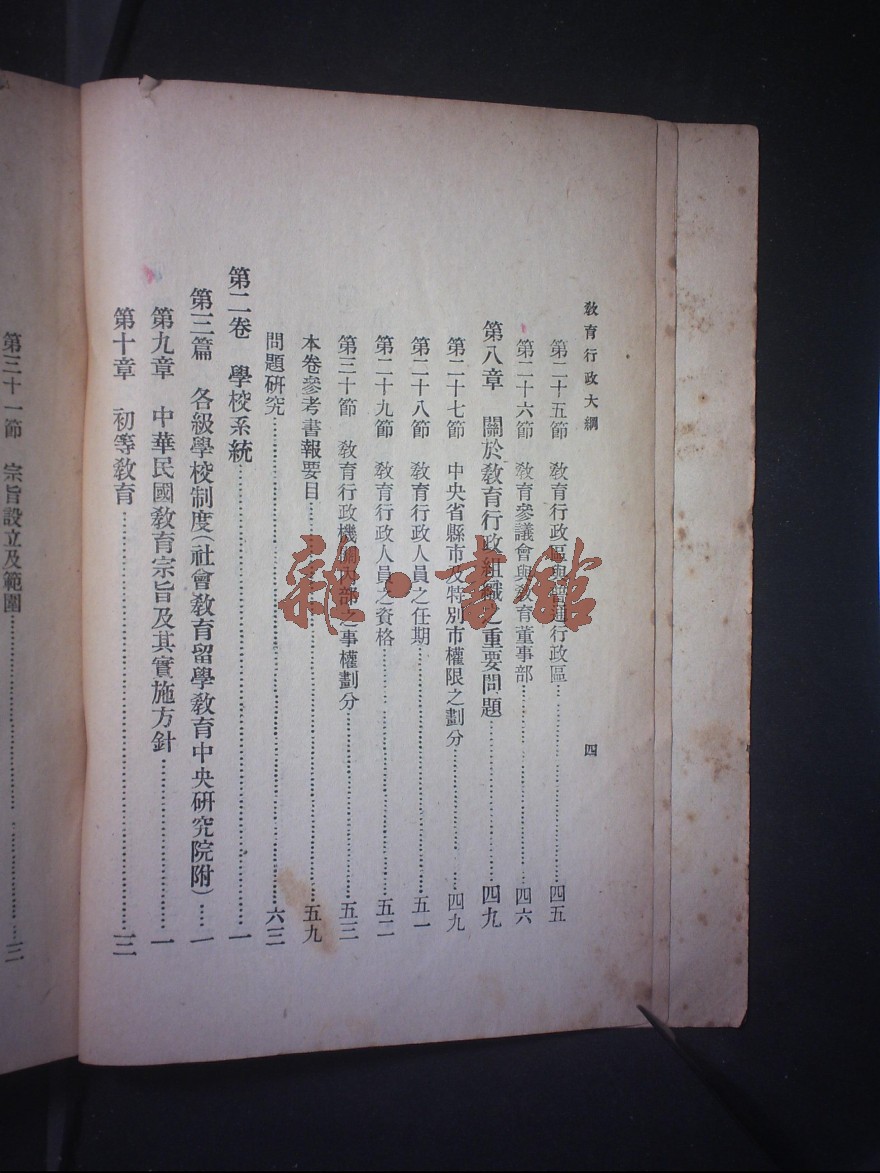 教育行政大綱
四
第二十五節 教育行政區與普通行政區……四五
第二十六節 教育參議會與教育董事部……四六
第八章 關於教育行政組織之重要問題……四九
第二十七節 中央省縣市及特別市權限之劃分……四九
第二十八節 教育行政人員之任期……五一
第二十九節 教育行政人員之資格……五二
第三十節 教育行政機關內部之事權劃分……五三
本卷參考書報要目……五九
問題研究……六三
第二卷 學校系統……一
第三篇 各級學校制度(社會教育留學教育中央研究院附)……一
第九章 中華民國教育宗旨及其實施方針……一
第十章 初等教育……三
第三十一節 宗旨設立及範圍……三
雜·書館